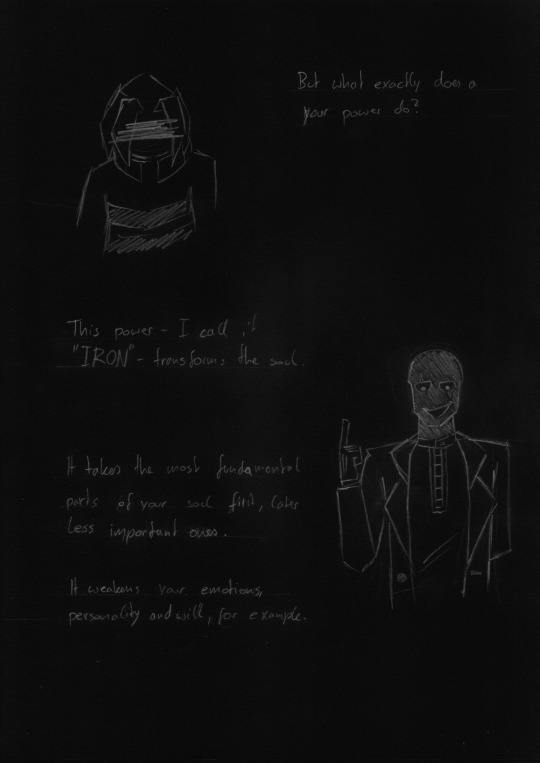 But what exactly does a
your power do?
This power - I call it
"IRON" - transforms the soul.
It takes the most fundamental
parts of your soul first, later
less important ones.
It weakens your emotions,
personality and will, for example.